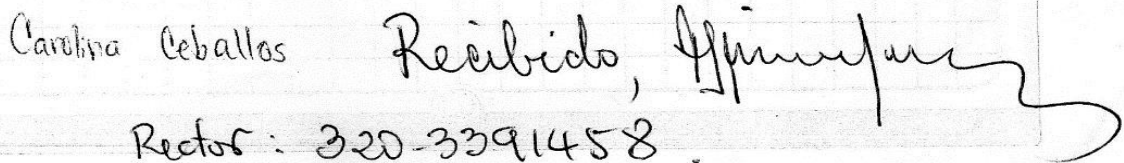 Carolina Ceballos Recibido,
Rector: 320-3391458.